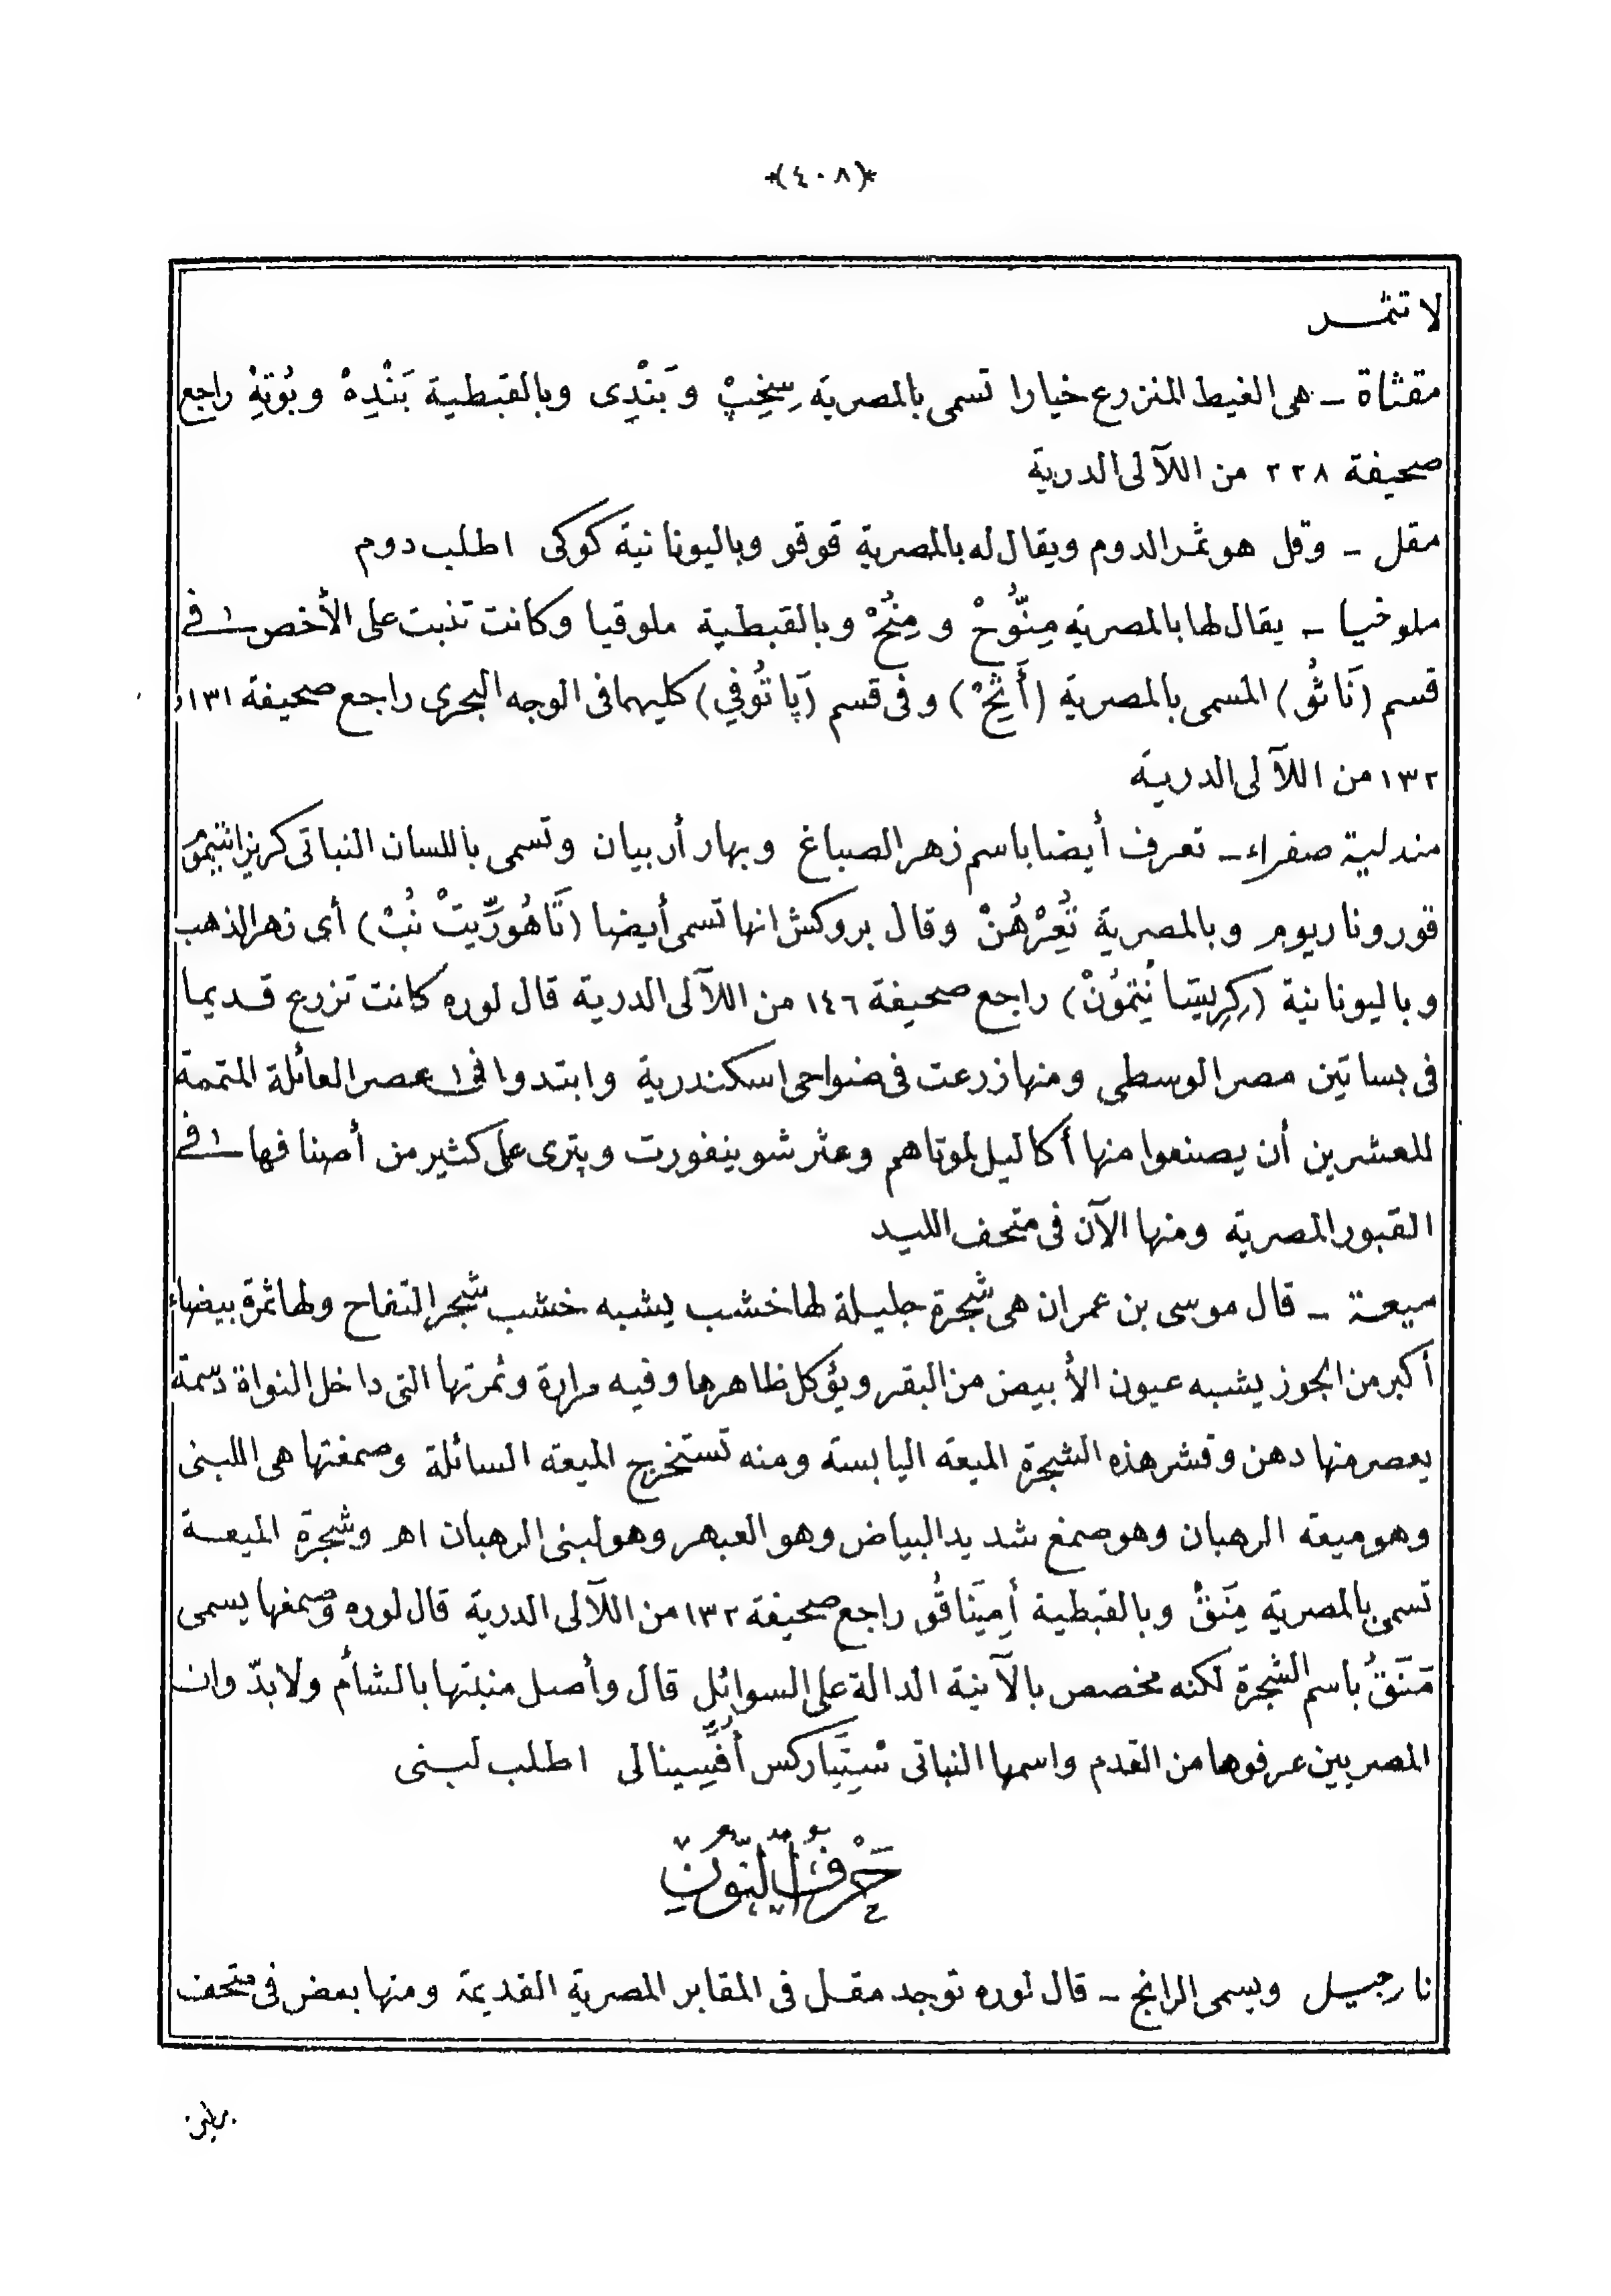 *(٤٠٨)*
لا تثمر
مقثاة ـ هى الغيط المنزرع خيارا تسمى بالمصرية سِخِپْ و بَنْدِى وبالقبطية بَنْدِهْ و بُونِهْ راجع
صحيفة ٢٢٨ من اللآلى الدرية
مقل ـ وقل هو ثمر الدوم ويقال له بالمصرية قوقو وباليونانية كوكى اطلب دوم
ملوخيا ـ يقال لها بالمصرية مِنُّوحْ و مِنُحْ وبالقبطية ملوقيا وكانت تنبت على الأخص فى
قسم (نَاثُو) المسمى بالمصرية (أَتِحْ) وفى قسم (پَاتُوفِي) كليهما فى الوجه البحرى راجع صحيفة ١٣١ و
١٣٢ من اللآلى الدرية
مندلية صفراء ـ تعرف أيضا باسم زهر الصباغ وبهار أربيان وتسمى باللسان النباتى كريزانتيمُ
قوروناريوم وبالمصرية تُعِرْهُنْ وقال بروكش انها تسمى أيضا (تَّاهُورِّيتْ نُبْ) أى زهر الذهب
وباليونانية (كِرِيسَانْتِمُونْ) راجع صحيفة ١٤٦ من اللآلى الدرية قال لوره كانت تزرع قديما
فى بساتين مصر الوسطى ومنها زرعت فى ضواحى اسكندرية وابتدوا فى عصر العائلة المتممة
للعشرين أن يصنعوا منها أكاليل لموتاهم وعثر شوينفورت وپترى على كثير من أصنافها فى
القبور المصرية ومنها الآن فى متحف الليد
ميعة ـ قال موسى بن عمران هى شجرة جليلة لها خشب يشبه خشب شجر التفاح ولها ثمرة بيضاء
أكبر من الجوز يشبه عيون الأبيض من البقر ويؤكل ظاهرها وفيه مرارة وثمرتها التى داخل النواة دسمة
يعصر منها دهن وقشر هذه الشجرة الميعة اليابسة ومنه تستخرج الميعة السائلة وصمغتها هى اللبنى
وهو ميعة الرهبان وهو صمغ شديد البياض وهو العبهر وهو لبنى الرهبان اهـ وشجرة الميعة
تسمى بالمصرية مِنَقْ وبالقبطية أَمِينَاقُو راجع صحيفة ١٣٢ من اللآلى الدرية قال لوره وصمغها يسمى
مَنَقُ باسم الشجرة لكنه مخصص بالآنية الدالة على السوائل قال وأصل منبتها بالشأم ولا بدّ وان
المصريين عرفوها من القدم واسمها النباتى سْتِيرَاركس أُفِّسِينالى اطلب لبنى
حَرْفُ النُّونِ
نارجيل ويسمى الرانج ـ قال لوره توجد مقل فى المقابر المصرية القديمة ومنها بعض فى متحف
برلين